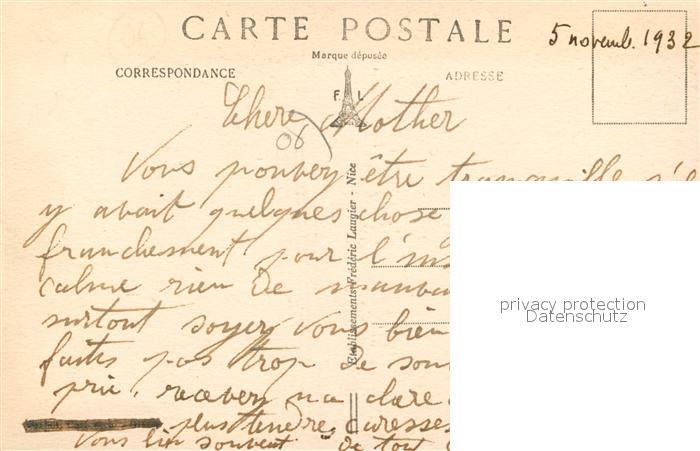 CARTE POSTALE
5 novemb. 1932
Marque déposée
CORRESPONDANCE
ADRESSE
F L
Chere Mother
06
06
Vous pouvez être tranquille s'il
y avait quelques chose
franchement pour l'ins
calme rien de mauvai
surtout soyez vous bien
faites pas trop de sou
prie, recevez ma chere
plus tendre caresses
Vous lire souvent de tout
Etablissements Frédéric Laugier - Nice
privacy protection
Datenschutz